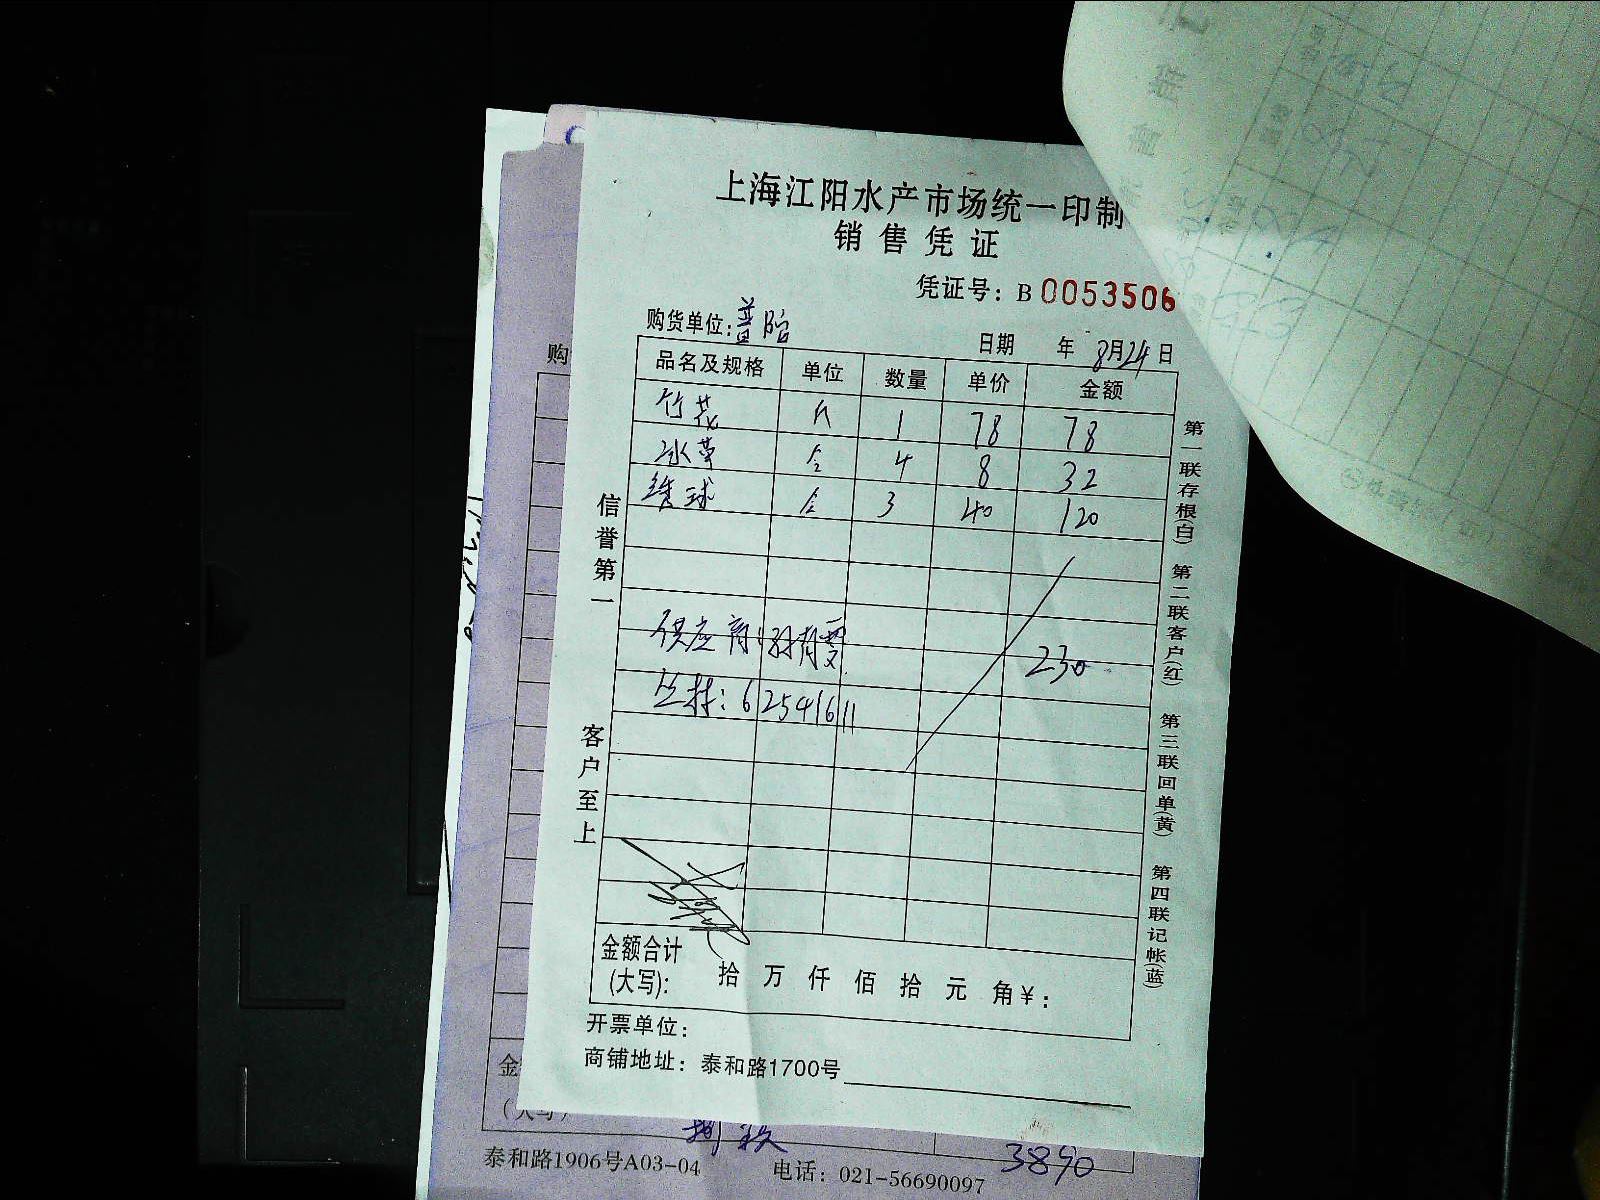 上海江阳水产市场统一印制
销售凭证
凭证号：B 0053506
购货单位：普陀
日期 年 8月24日
品名及规格 单位 数量 单价 金额
竹花 1 78 78
冰草 4 8 32
绣球 3 40 120
供应商：
230
丛林：62541611
信誉第一
客户至上
第一联存根(白) 第二联客户(红) 第三联回单(黄) 第四联记帐(蓝)
金额合计
(大写)： 拾 万 仟 佰 拾 元 角 ¥：
开票单位：
商铺地址：泰和路1700号
购
金
(大写)
3890
泰和路1906号A03-04 电话：021-56690097